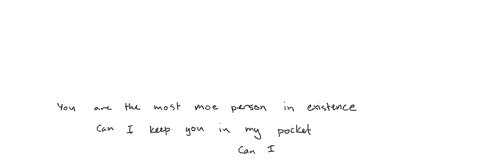 You are the most moe person in existence
Can I keep you in my pocket
Can I